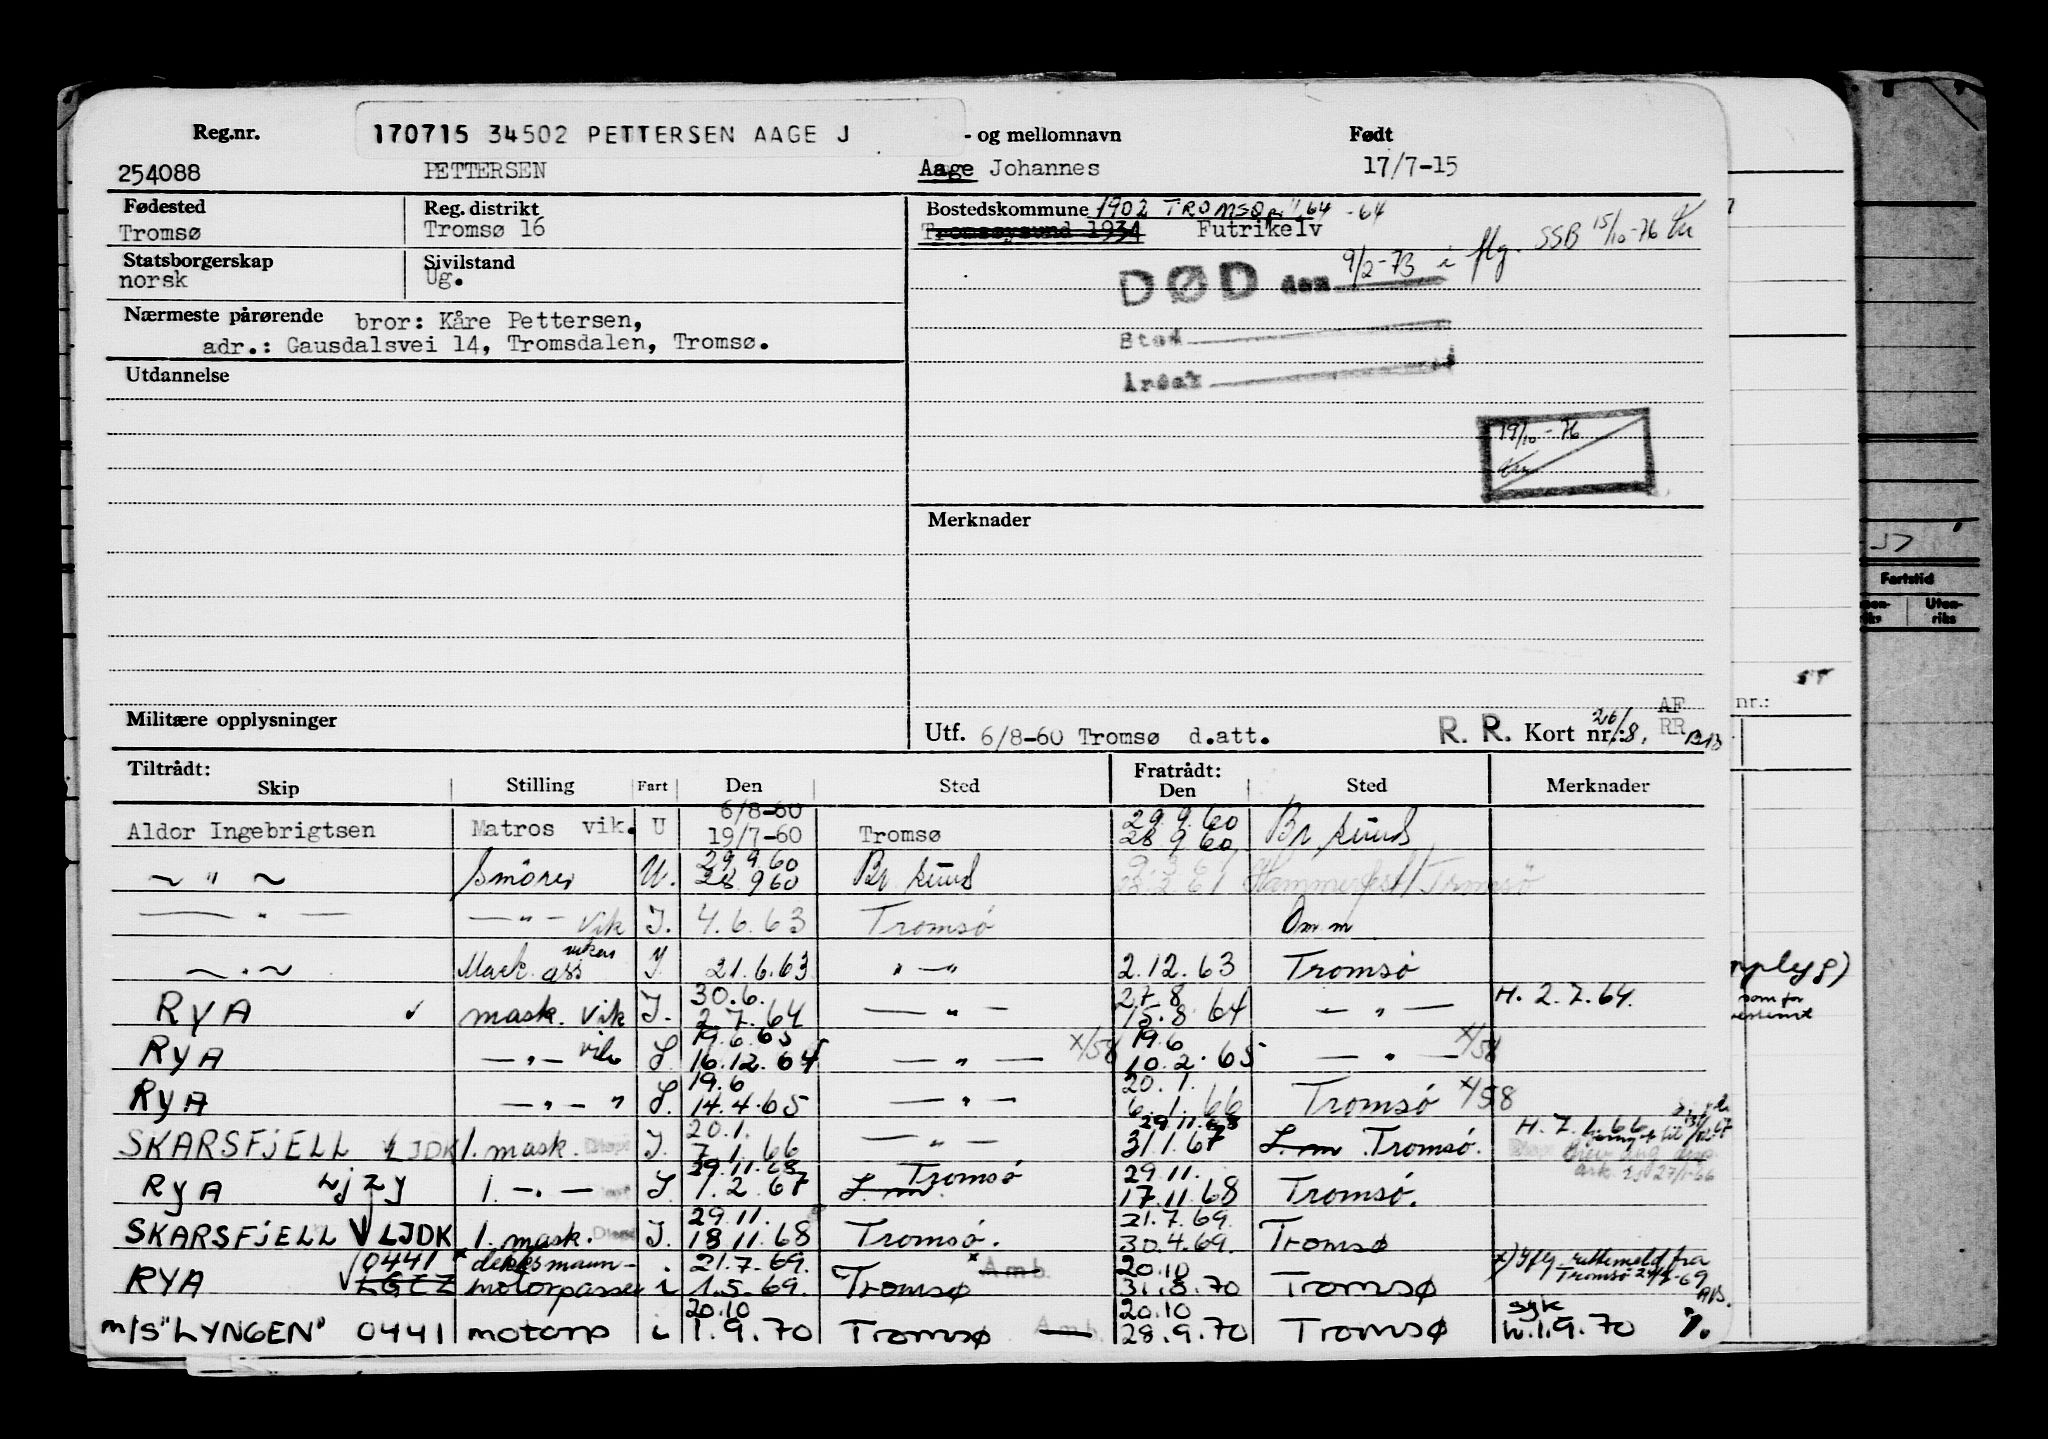 Reg.nr. 170715 34502 PETTERSEN AAGE J - og mellomnavn Født
254088 PETTERSEN Aage Johannes 17/7-15
Fødested Reg. distrikt Bostedskommune 1902 TROMSØ 64 -64
Tromsø Tromsø 16 Tromsøysund 1934 Futrikelv
Statsborgerskap Sivilstand
norsk Ug.
DØD den 9/2-73 i flg. SSB 15/10-76
Nærmeste pårørende bror: Kåre Pettersen,
adr.: Gausdalsvei 14, Tromsdalen, Tromsø.
Sted
Årsak
Utdannelse
19/10-76
Merknader
Militære opplysninger
Utf. 6/8-60 Tromsø d.att. R. R. Kort nr.: 26/8. AF
RR
nr.:
Fartstid
Uten-
riks
Tiltrådt: Fratrådt:
Skip Stilling Fart Den Sted Den Sted Merknader
6/8-60 29.9.60
Aldor Ingebrigtsen Matros vik. U 19/7-60 Tromsø 28 9 60 Br. sund
29.9.60
~ " ~ Smører U. 28 9 60 Br. sund Hammerfest/Tromsø
— " — — " — vik I. 4.6.63 Tromsø Omm
~ " ~ Mask. ass I. 21.6.63 " — " 2.12.63 Tromsø
30.6. 27.8
RYA mask. vik I. 2.7.64 — " — 15.8.64 — " — H. 2.7.64.
19.6.65 19.6
RYA — " — vik I. 16.12.64 — " — x/58 10.2.65 — " — x/58
19.6 20.1.
RYA — " — " I. 14.4.65 — " — 6.1.66 Tromsø x/58
20.1. 29.11.68 H. 7.1.66
SKARSFJELL LJDK 1. mask. I. 7.1.66 — " — 31.1.67 L.m. Tromsø.
29.11.68 Tromsø 29.11.
RYA LJZY 1. — " — I. 1.2.67 L.m. 17.11.68 Tromsø.
29.11. 21.7.69.
SKARSFJELL LJDK 1. mask. I. 18 11.68 Tromsø. 30.4.69. Tromsø
0441 dekksmann- 21.7.69. 20.10 x) Iflg rettemeld fra
RYA LGCZ motorpasser i 1.5.69. Tromsø Amb. 31.8.70 Tromsø Tromsø
20.10 20.10 syk
m/S "LYNGEN" 0441 motorp i 1.9.70 Tromsø — Amb. 28.9.70 Tromsø h.1.9.70